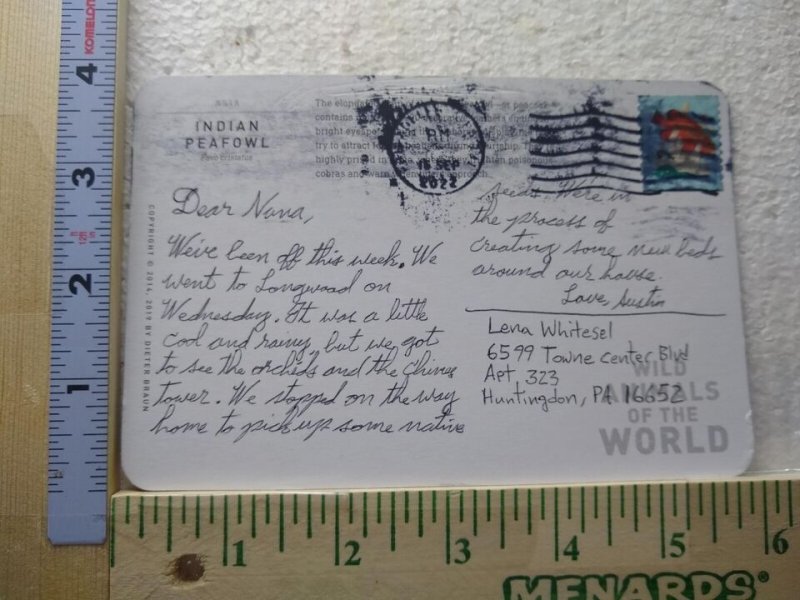 KOMELON
4
3
2
1
ASIA
INDIAN
PEAFOWL
Pavo cristatus
The elong
contains
bright eyes
try to attract
highly prized in
cobras and
approach.
PM
15 SEP
2022
COPYRIGHT © 2014, 2019 BY DIETER BRAUN
Dear Nana,
We've been off this week. We
went to Longwood on
Wednesday. It was a little
cool and rainy, but we got
to see the orchids and the Chimes
tower. We stopped on the way
home to pick up some native
seeds. We're in
the process of
creating some new beds
around our house.
Love, Austin
Lena Whitesel
6599 Towne Center Blvd
Apt 323
Huntingdon, PA 16652
WILD
ANIMALS
OF THE
WORLD
1 2 3 4 5 6
MENARDS®